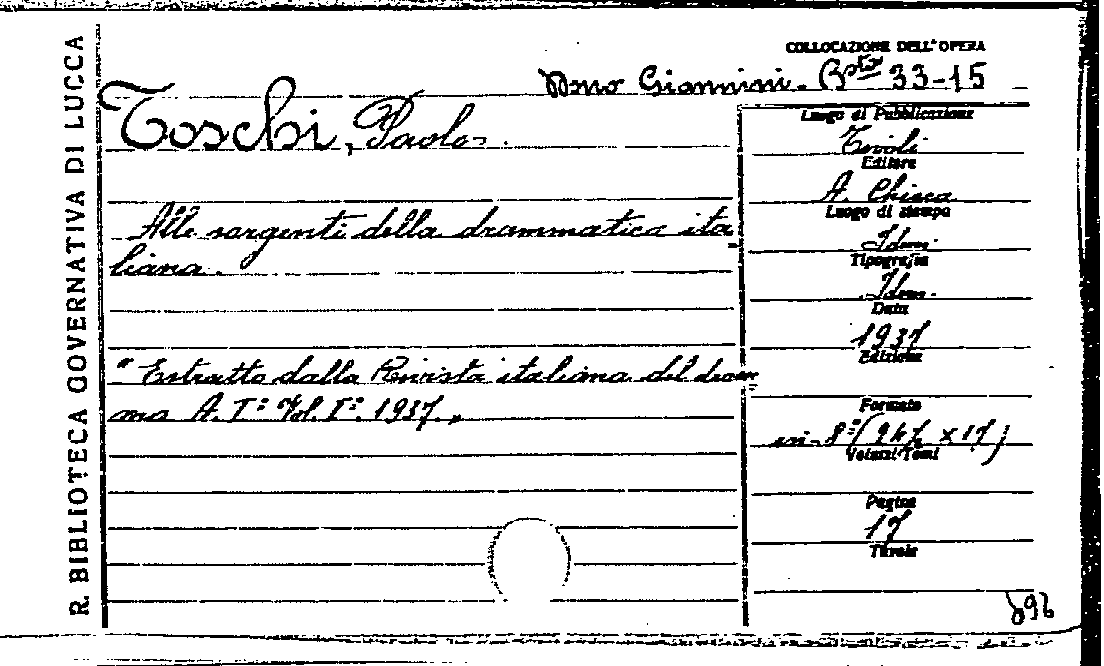 R. BIBLIOTECA GOVERNATIVA DI LUCCA
COLLOCAZIONE DELL'OPERA
Dono Giannini. Bta 33-15
Toschi, Paolo.
Alle sorgenti della drammatica ita
liana.
"Estratto dalla Rivista italiana del dram=
ma A. I° Vol. I°. 1937."
Luogo di Pubblicazione
Tivoli
Editore
A. Chicca
Luogo di stampa
Idem.
Tipografia
Idem.
Data
1937
Edizione
Formato
in-8°( × 17)
Volumi/Tomi
Pagine
17
Tavole